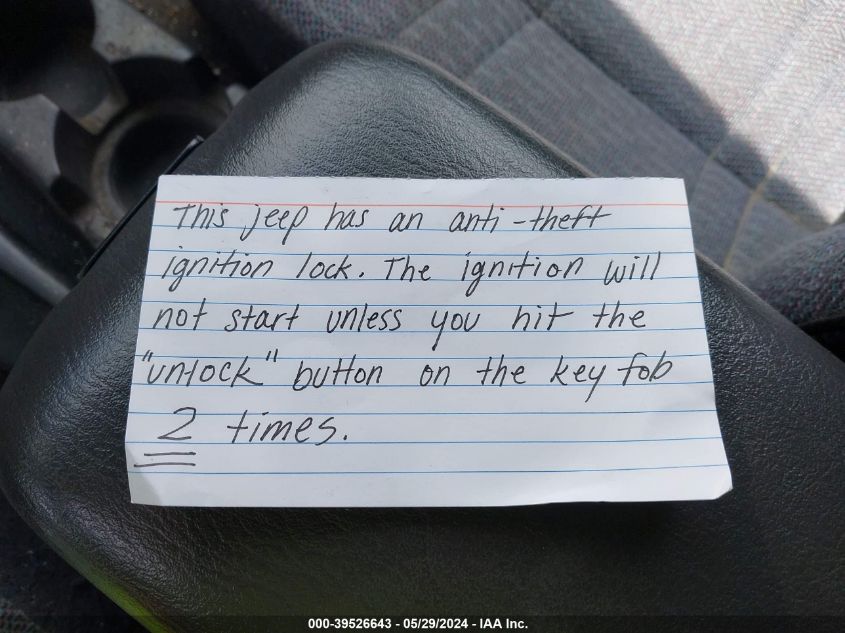 This jeep has an anti-theft
ignition lock. The ignition will
not start unless you hit the
"unlock" button on the key fob
2 times.
000-39526643 - 05/29/2024 - IAA Inc.